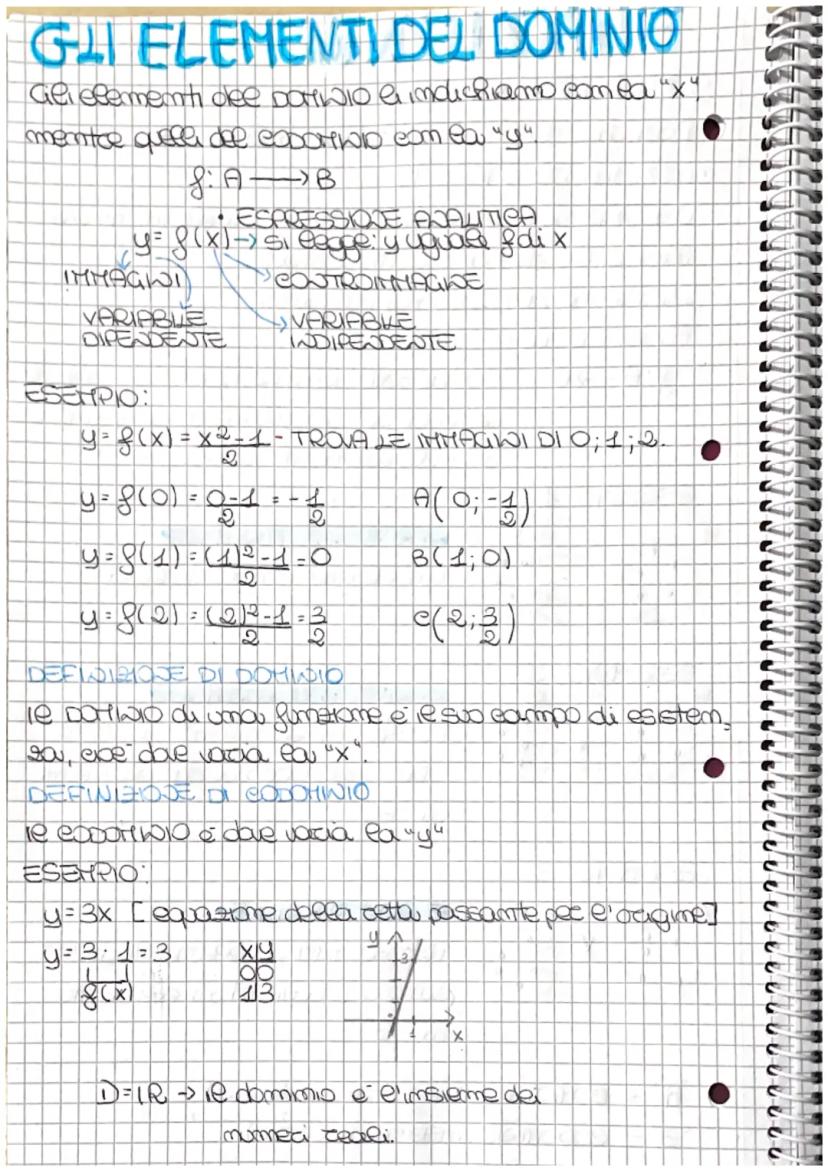 GLI ELEMENTI DEL DOMINIO
Gli elementi del DOMINIO li indichiamo con la "x",
mentre quelli del CODOMINIO con la "y".
f: A → B
• ESPRESSIONE ANALITICA
y = f(x) → si legge: y uguale f di x
IMMAGINI CONTROIMMAGINE
VARIABILE VARIABILE
DIPENDENTE INDIPENDENTE
ESEMPIO:
y = f(x) = x²-1/2 - TROVA LE IMMAGINI DI 0; 1; 2.
y = f(0) = 0-1/2 = -1/2 A(0; -1/2)
y = f(1) = (1)²-1/2 = 0 B(1; 0)
y = f(2) = (2)²-1/2 = 3/2 C(2; 3/2)
DEFINIZIONE DI DOMINIO
Il DOMINIO di una funzione è il suo campo di esisten-
za, cioè dove varia la "x".
DEFINIZIONE DI CODOMINIO
Il CODOMINIO è dove varia la "y"
ESEMPIO:
y = 3x [equazione della retta passante per l'origine]
y = 3 · 1 = 3 x|y y
f(x) 0 0 3
1 3 1 x
D = ℝ → il dominio è l'insieme dei
numeri reali.